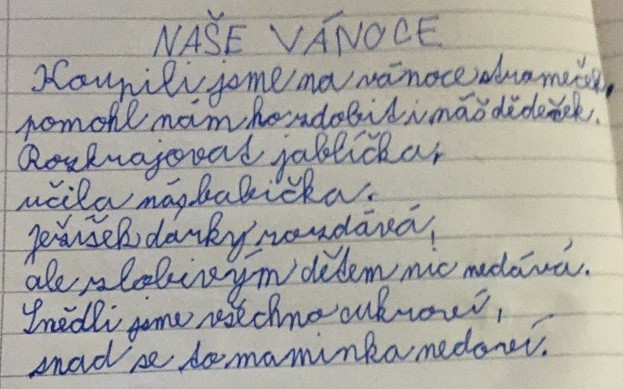 NAŠE VÁNOCE
Koupili jsme na vánoce stromeček,
pomohl nám ho zdobit i náš dědeček.
Rozkrajovat jablíčka,
učila nás babička.
Ježíšek darky rozdává,
ale zlobivým dětem nic nedává.
Snědli jsme všechno cukroví,
snad se to maminka nedoví.